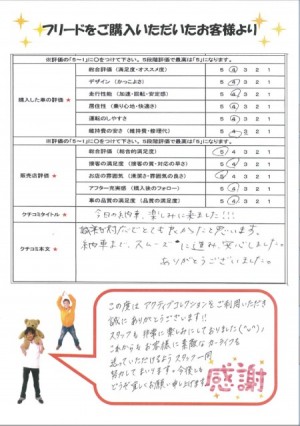 フリードをご購入いただいたお客様より
※評価の「5～1」に○をつけて下さい。5段階評価で最高は「5」になります。
購入した車の評価 ★
総合評価(満足度・オススメ度) 5 4 3 2 1
デザイン(かっこよさ) 5 4 3 2 1
走行性能(加速・回転・安定感) 5 4 3 2 1
居住性(乗り心地・快適さ) 5 4 3 2 1
運転のしやすさ 5 4 3 2 1
維持費の安さ(維持費・修理代) 5 4 3 2 1
※評価の「5～1」に○をつけて下さい。5段階評価で最高は「5」になります。
販売店評価 ★
総合評価(総合的満足度) 5 4 3 2 1
接客の満足度(接客の質・対応の早さ) 5 4 3 2 1
お店の雰囲気(清潔さ・雰囲気の良さ) 5 4 3 2 1
アフター充実感(購入後のフォロー) 5 4 3 2 1
車の品質の満足度(品質の満足度) 5 4 3 2 1
クチコミタイトル ★
今日の納車、楽しみに来ました!!!
クチコミ本文 ★
とても良かったと思います。
納車まで、スムーズに進み、安心しました。
ありがとうございました。
この度は アクティブコレクションをご利用いただき
誠にありがとうございます!!
スタッフも非常に楽しみにしておりました(^o^)
これからも お客様に素敵な カーライフを
送っていただけるよう スタッフ一同
努力してまいります。今後とも
どうぞ宜しくお願い申し上げます
感謝